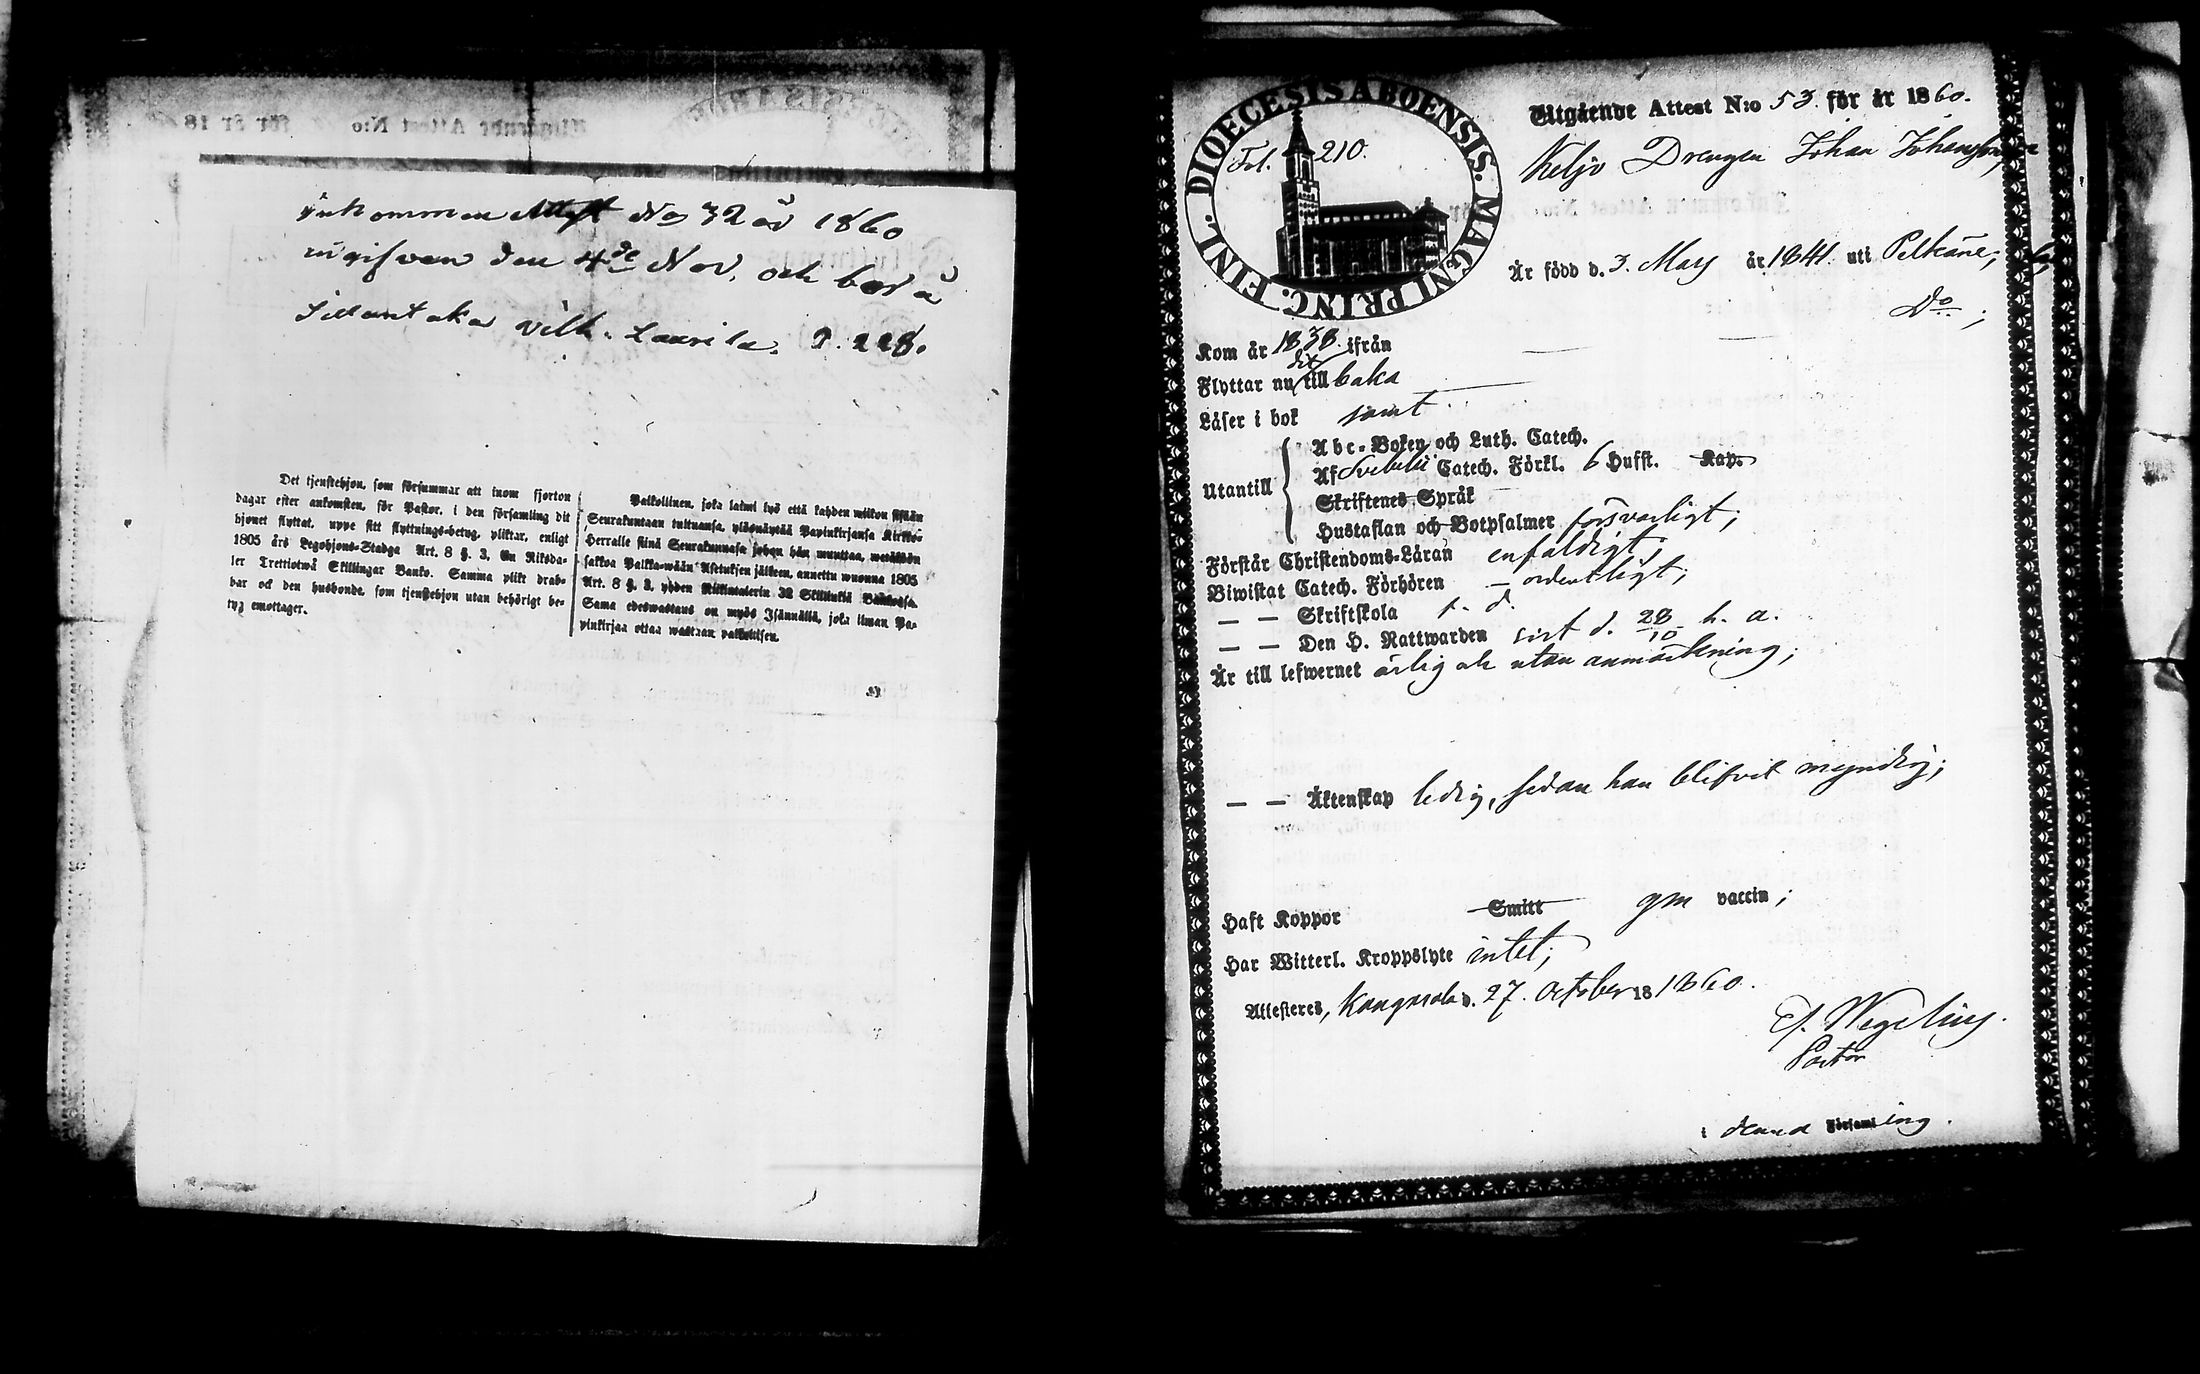 Inkommen Attest No 32 år 1860
ingifven den 4de Nov. och bor å
vilh. Laurila. P. 228.
Det tjenstehjon, som försummar att inom fjorton
dagar efter ankomsten, för Pastor, i den församling dit
hjonet flyttat, uppe sitt flyttnings-betyg, pliktar, enligt
1805 års Legohjons-Stadga Art. 8 §. 3. En Riksda-
ler Trettiotwå Skillingar Banko. Samma plikt drab-
bar ock den husbonde, som tjenstehjon utan behörigt be-
tyg emottager.
Palkollinen, joka laimi lyö että kahden wiikon sisään
Seurakuntaan tultuansa, yläsnäytää Papinkirjansa Kirkko-
Herralle siinä Seurakunnasa johon hän muuttaa, wetäköön
sakkoa Palkka-wään Asetuksen jälkeen, annettu wuonna 1805
Art. 8 §. 3. yhden Riikintalerin 32 Skillinkiä Bankossa.
Sama edeswastaus on myös Isännällä, joka ilman Pa-
pinkirjaa ottaa wastaan palkollisen.
DIOECESIS ABOENSIS. MAGNI PRINC. FINL.
Fol. 210.
Utgående Attest N:o 53. för år 1860.
Keljo Drengen Johan Johansson
Är född d. 3. Marj år 1841. uti Pelkäne;
Do;
Kom år 1838. ifrån
Flyttar nu dit tillbaka
Läser i bok samt
Utantill
Abc-Boken och Luth. Catech.
Af Svebelii Catech. Förkl. 6 Hufst. Kap.
Skriftenes Språk
Hustaflan och Botpsalmer försvarligt;
Förstår Christendoms-Läran enfaldigt;
Biwistat Catech. Förhören — ordentligt;
— — Skriftskola s. d.
— — Den H. Nattwarden sist d. 28/10 h. a.
Är till lefwernet ärlig och utan anmärkning;
— — Äktenskap ledig, sedan han blifvit myndig;
Haft Koppor Smitt gm vaccin;
Har Witterl. Kroppslyte intet;
Attesteres, Kangasala d. 27. October 18 1860.
Wegelius.
Pastor
i denna Församling.